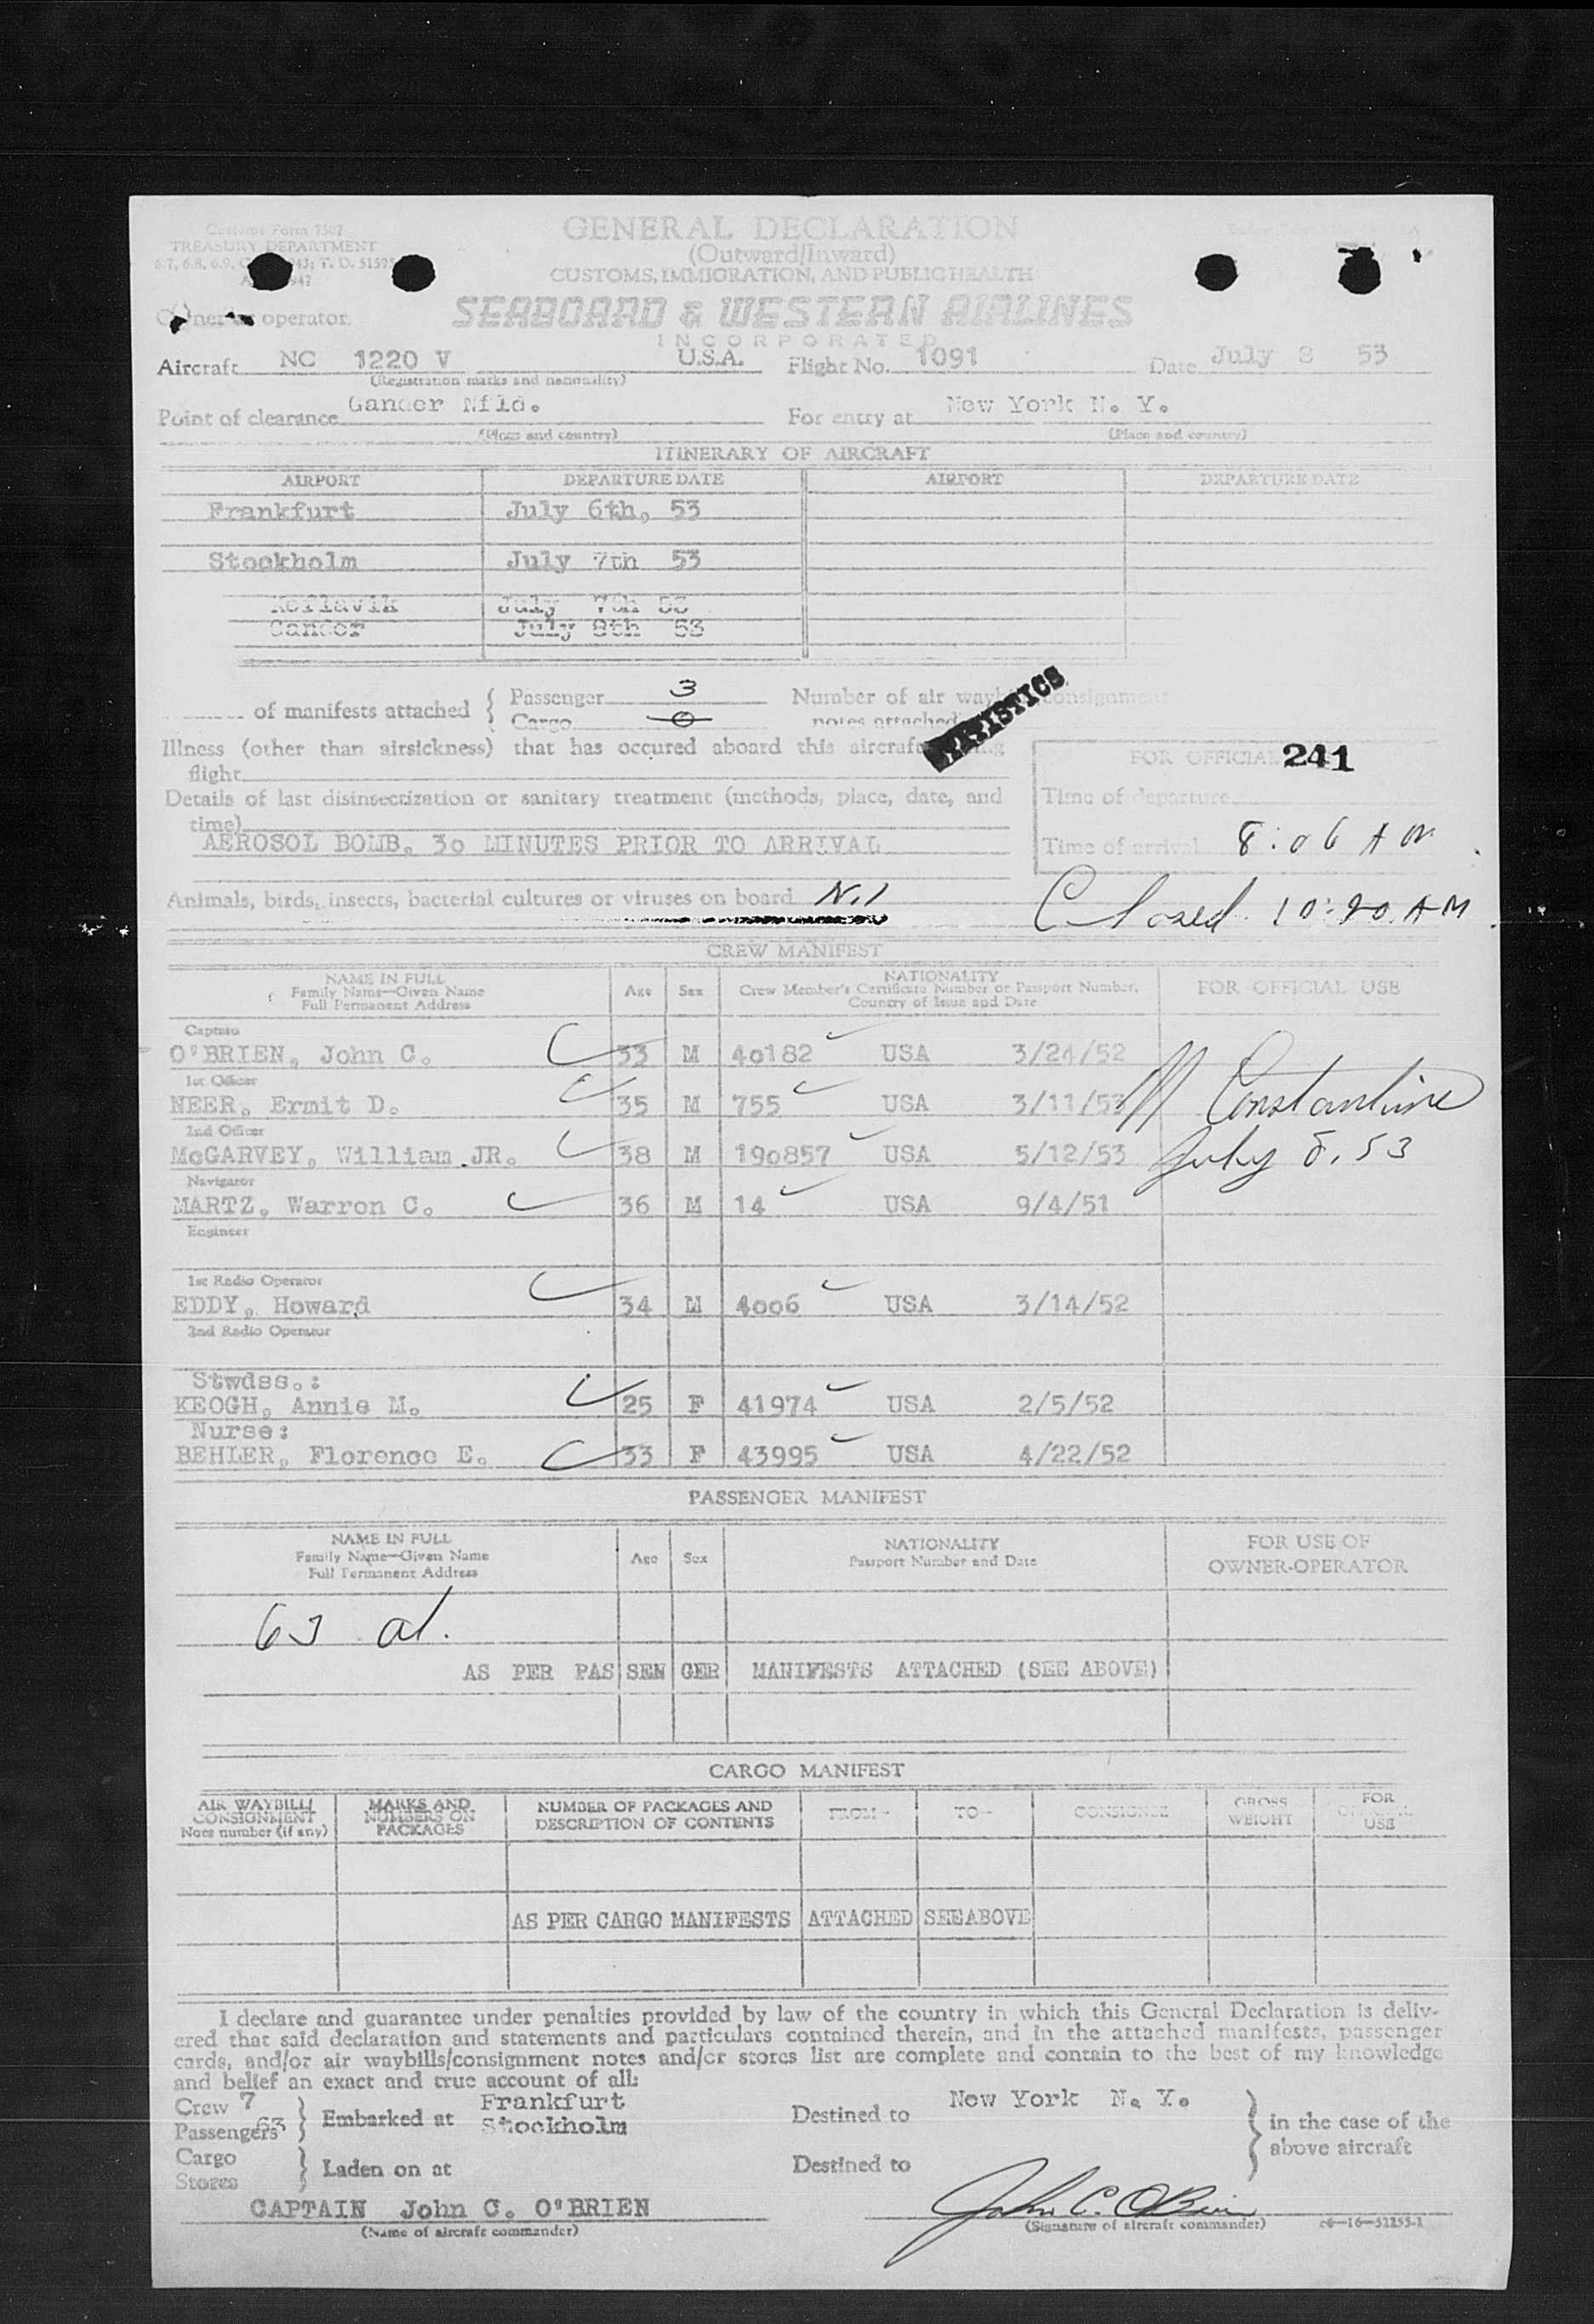 Customs Form 7507
GENERAL DECLARATION
TREASURY DEPARTMENT
(Outward/Inward)
6.7, 6.8, 6.9, 943; T. D. 5159
CUSTOMS, IMMIGRATION, AND PUBLIC HEALTH
947
operator
SEABOARD & WESTERN AIRLINES
INCORPORATED
Aircraft NC 1220 V U.S.A. Flight No. 1091 Date July 8 53
(Registration marks and nationality)
Point of clearance Gander Nfld. For entry at New York N. Y.
(Place and country) (Place and country)
ITINERARY OF AIRCRAFT
AIRPORT DEPARTURE DATE AIRPORT DEPARTURE DATE
Frankfurt July 6th, 53
Stockholm July 7th 53
Keflavik July 7th 53
Gander July 8th 53
of manifests attached { Passenger 3 Number of air consignment
Cargo 0 notes attached
STATISTICS
Illness (other than airsickness) that has occured aboard this aircraft
flight
FOR OFFICIAL 241
Details of last disinsectization or sanitary treatment (methods, place, date, and
time)
Time of departure
AEROSOL BOMB. 30 MINUTES PRIOR TO ARRIVAL
Time of arrival 8:06 AM
Animals, birds, insects, bacterial cultures or viruses on board Nil
Closed 10:20 AM
CREW MANIFEST
NAME IN FULL
Family Name—Given Name
Full Permanent Address
Age Sex
NATIONALITY
Crew Member's Certificate Number or Passport Number,
Country of Issue and Date
FOR OFFICIAL USE
Captain
O'BRIEN, John C. 33 M 40182 USA 3/24/52
1st Officer
NEER, Ermit D. 35 M 755 USA 3/11/53 Constantine
2nd Officer
McGARVEY, William JR. 38 M 190857 USA 5/12/53 July 8, 53
Navigator
MARTZ, Warron C. 36 M 14 USA 9/4/51
Engineer
1st Radio Operator
EDDY, Howard 34 M 4006 USA 3/14/52
2nd Radio Operator
Stwdss.:
KEOGH, Annie M. 25 F 41974 USA 2/5/52
Nurse:
BEHLER, Florence E. 33 F 43995 USA 4/22/52
PASSENGER MANIFEST
NAME IN FULL
Family Name—Given Name
Full Permanent Address
Age Sex
NATIONALITY
Passport Number and Date
FOR USE OF
OWNER-OPERATOR
63 al.
AS PER PASSENGER MANIFESTS ATTACHED (SEE ABOVE)
CARGO MANIFEST
AIR WAYBILL/
CONSIGNMENT
Note number (if any)
MARKS AND
NUMBERS ON
PACKAGES
NUMBER OF PACKAGES AND
DESCRIPTION OF CONTENTS
FROM— TO— CONSIGNEE
GROSS
WEIGHT
FOR
OFFICIAL
USE
AS PER CARGO MANIFESTS ATTACHED SEE ABOVE
I declare and guarantee under penalties provided by law of the country in which this General Declaration is deliv-
ered that said declaration and statements and particulars contained therein, and in the attached manifests, passenger
cards, and/or air waybills/consignment notes and/or stores list are complete and contain to the best of my knowledge
and belief an exact and true account of all:
Crew 7 Frankfurt New York N. Y.
Passengers 63 } Embarked at Stockholm Destined to } in the case of the
above aircraft
Cargo
Stores } Laden on at Destined to
CAPTAIN John C. O'BRIEN John C. OBrien
(Name of aircraft commander) (Signature of aircraft commander)